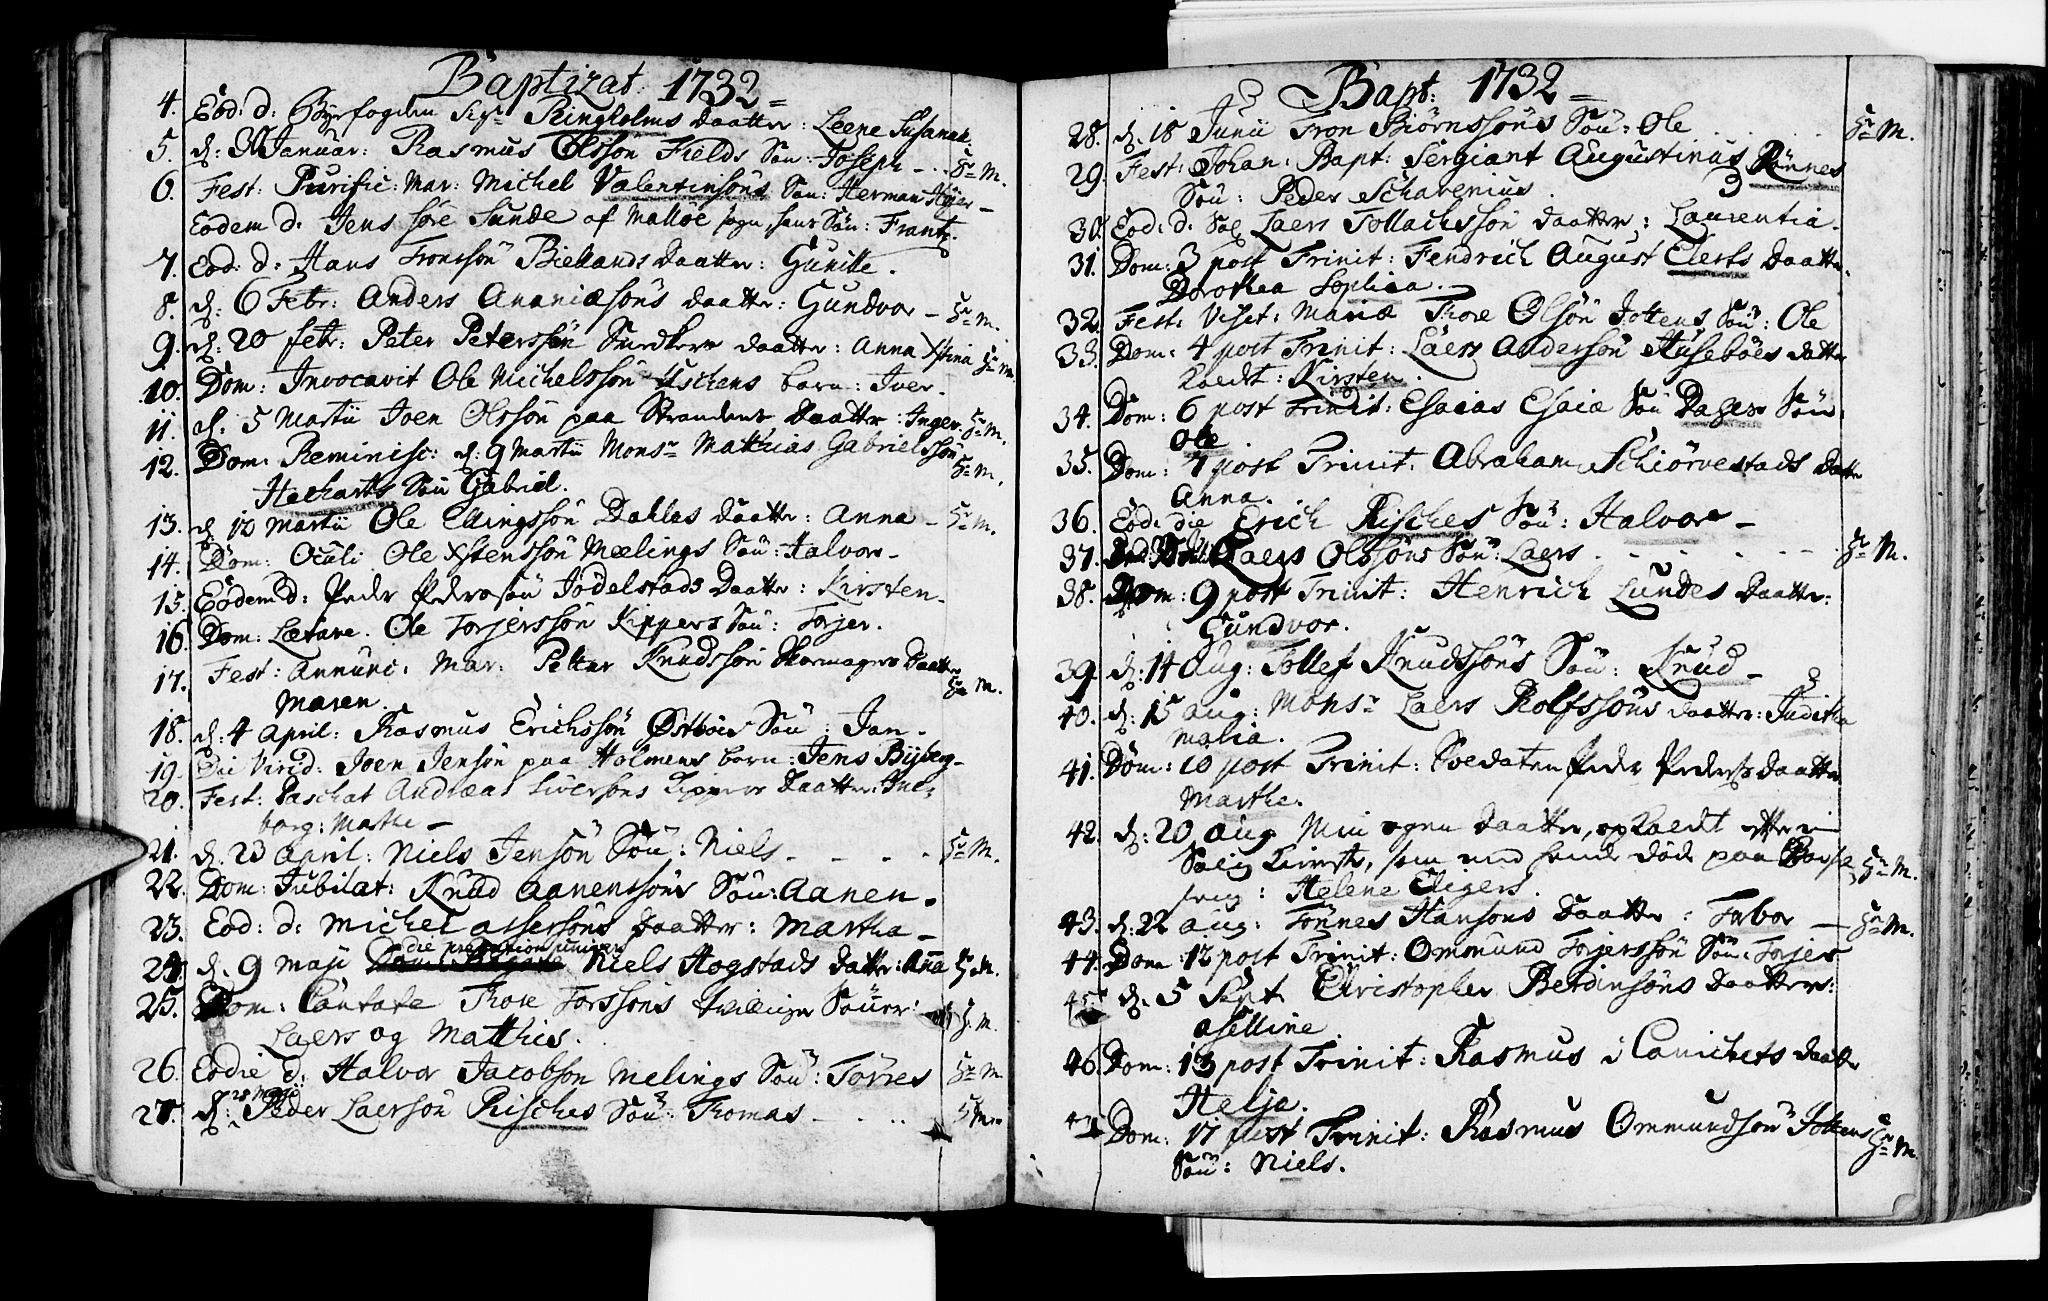 Baptizat: 1732
4. Eod: d: Byefogden Sigr Ringholms Daatter: Leene Susanna.
5. d: 30 Januar: Rasmus Olsön Fields Sön: Joseph - .. Hr M.
6. Fest: Purific: Mar: Michel Valentinsöns Sön: Herman Höjer -
Eodem d: Jens Söre Sunde af Malloe sogn, hans Sön: Frantz.
7. Eod: d: Hans Tronssön Bielands Daatter: Gunille.
8. d: 6 Febr: Anders Ananiæsöns daatter: Gundvor - Hr M.
9. d: 20 febr: Peter Peterssön daatter: Anna Xstina Hr M.
10. Dom: Invocavit Ole Michelssön Uschens barn: Iver.
11. d: 5 Martii Joen Olssön paa Strandens Daatter: Inger Hr M.
12. Dom: Reminisc: d: 9 Martii Monsr Matthias Gabrielssön Hr M.
Hecharts Sön Gabriel.
13. d 12 Martii Ole Ellingssön Dahles Daatter: Anna - Hr M.
14. Dom: Oculi Ole Xstenssön Mælings Sön: Halvor -
15. Eodem d: Peder Pedersön Jödelstads Daatter: Kirsten -
16 Dom: Lætare. Ole Torjerssön Kippers Sön: Torjer.
17. Fest: Annunc: Mar: Petter Knudssön Skomagers Daatter Hr M.
Maren.
18. d: 4 April: Rasmus Erichssön Östböes Sön: Jan -
19. Die Virid: Joen Jensön paa Holmens barn: Jens Byberg -
20. Fest: Paschat Andreas Siversöns Kippers Daatter: Inge-
borg: Marthe -
21. d. 23 April: Niels Jensön Sön: Niels - - - - Hr M.
22. Dom: Jubilat: Knud Aanenssöns Sön: Aanen.
23. Eod: d: Michel Assersöns Daatter: Martha -
die
24 d. 9 Maji Niels Hogstads Datter: Ana Hr M.
25. Dom: Cantate Thore Torssöns tvillinger Sönner: H. M.
Laers og Matthis.
26. Eodie d: Halvor Jacobsön Melings Sön: Törres Hr M
28 Maji
27. d: Peder Laersön Risches Sön: Thomas - . .. Hr M.
Bapt: 1732
28. d. 18 Junii Tron Biörnssöns Sön: Ole . . . . Hr M.
29. Fest: Johan: Bapt: Sergiant Augustinus Rönnes
Sön: Peder Schavenius.
30. Eod: d: Sal Laers Tollachssön daatter: Laurentia.
31. Dom: 3 post Trinit: Fendrich August Elerts Daatter.
Dorothea Sophia.
32. Fest: Visit: Mariæ Thore Olsön Jottens Sön: Ole
33. Dom: 4 post Trinit: Laers Andersön Huseböes datter
kaedt: Kirsten.
34. Dom: 6 post Trinit: Esaias Esaiæ Sön Dagers Sön:
Ole
35. Dom: 7 post Trinit: Abraham Schiörvestads Datter
Anna.
36. Eod: die Erich Risches Sön: Halvor -
37. Laers Olssöns Sön: Laers . - - . - - Hr M.
38. Dom: 9 post Trinit: Henrich Lundes Daatter:
Gundvor.
39. d: 14 Aug: Tollef Knudssöns Sön: Knud -
40. d: 15 aug: Monsr Laers Rolfssöns daatter: Juditha
Malia.
41. Dom: 10 post Trinit: Soldaten Peder Peders Daatter
Marthe.
42. d: 20 aug Min egen Daatter, opkaedt efter min
Salig Kiereste, som med hende döde paa Barsel
seng: Helene Eligers. Hr M.
43. d: 22 aug: Tönnes Hansöns Daatter: Torbor - Hr M.
44. Dom: 12 post Trinit: Ommund Torjerssön Sön: Torjer
45 d: 5 Sept Christopher Berdinsöns Daatter:
Aselline
46. Dom: 13 post Trinit: Rasmus i Canichets daatter
Helje.
47 Dom: 17 post Trinit: Rasmus Ommundsön Jottens Hr M.
Sön: Niels.